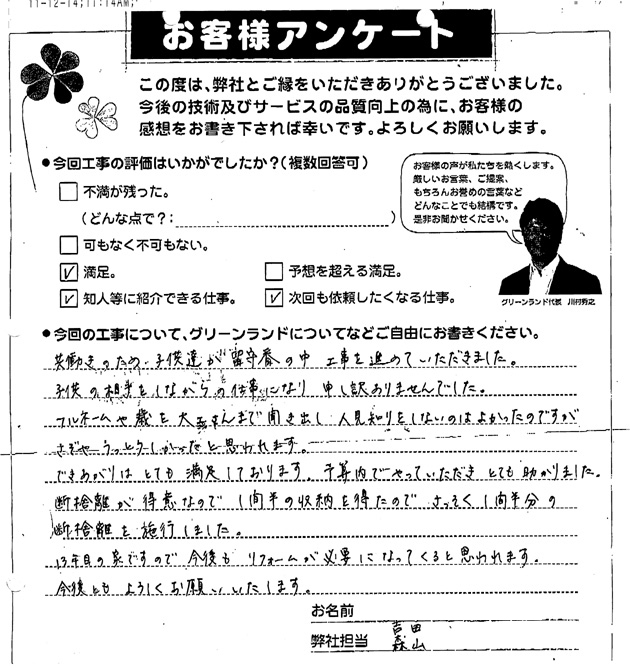 11-12-14;11:14AM;
お客様アンケート
この度は、弊社とご縁をいただきありがとうございました。
今後の技術及びサービスの品質向上の為に、お客様の
感想をお書き下されば幸いです。よろしくお願いします。
●今回工事の評価はいかがでしたか?(複数回答可)
お客様の声が私たちを動くします。
厳しいお言葉、ご提案、
もちろんお誉めの言葉など
どんなことでも結構です。
是非お聞かせください。
グリーンランド代表 川村秀之
□ 不満が残った。
(どんな点で?: )
□ 可もなく不可もない。
☑ 満足。 □ 予想を超える満足。
☑ 知人等に紹介できる仕事。 ☑ 次回も依頼したくなる仕事。
●今回の工事について、グリーンランドについてなどご自由にお書きください。
共働きのため、子供達が留守番の中 工事を進めていただきました。
子供の相手をしながらの仕事になり 申し訳ありませんでした。
フルネームや歳を大 さんまで聞き出し 人見知りをしないのはよかったのですが
さぞや うっとうしかったと思われます。
できあがりは とても 満足しております。予算内でやっていただき とても 助かりました。
断捨離が得意なので 1間半の収納を得たので さっそく1間半分の
断捨離を施行しました。
13年目の家ですので 今後も リフォームが必要になってくると思われます。
今後とも よろしくお願いいたします。
お名前 吉田
弊社担当 森山